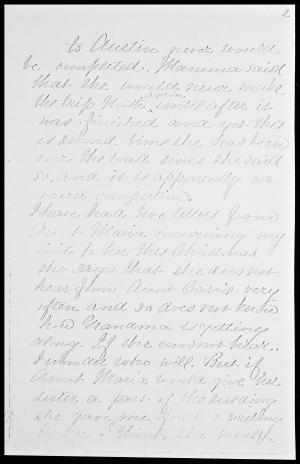 2
to Austin never would
be completed. Mamma said
that she would never make
the trip North again until after it
was finished and yet this
is second time she has been
over the road since she said
so, and it is apparently no
nearer completion.
I have had two letters from
Aunt Maria concerning my
visit to her this Christmas.
She says that she does not
hear from Aunt Carrie very
often and so does not know
how Grandma is getting
along. If she cannot hear
I wonder who will. But if
Aunt Maria would give her
sister a part of the scolding
she gave me for not writing
to her I think she would